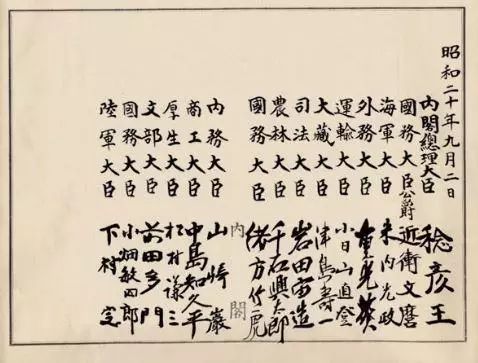 昭和二十年九月二日
内閣總理大臣 稔彦王
國務大臣公爵 近衛文麿
海軍大臣 米内光政
外務大臣 重光葵
運輸大臣 小日山直登
大藏大臣 津島壽一
司法大臣 岩田宙造
農林大臣 千石興太郎
國務大臣 緒方竹虎
内閣
内務大臣 山崎巖
商工大臣 中島知久平
厚生大臣 松村謙三
文部大臣 前田多門
國務大臣 小畑敏四郎
陸軍大臣 下村定